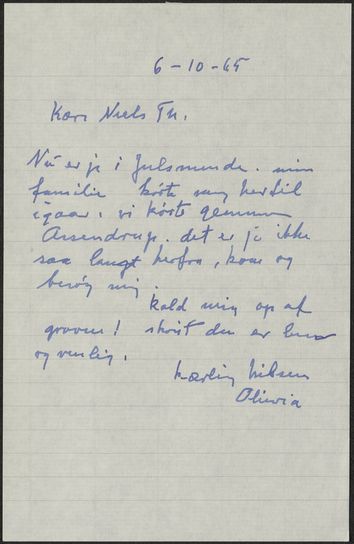 6-10-65
Kære Niels Th.
Nu er je i Julsminde. min
familie kørte mig hertil
igaar. vi kørte gennem
Assendrup. det er jo ikke
saa langt herfra, kom og
besøg mig.
kald mig op af
graven! skønt den er lun
og venlig.
Kærlig hilsen
Oliwia